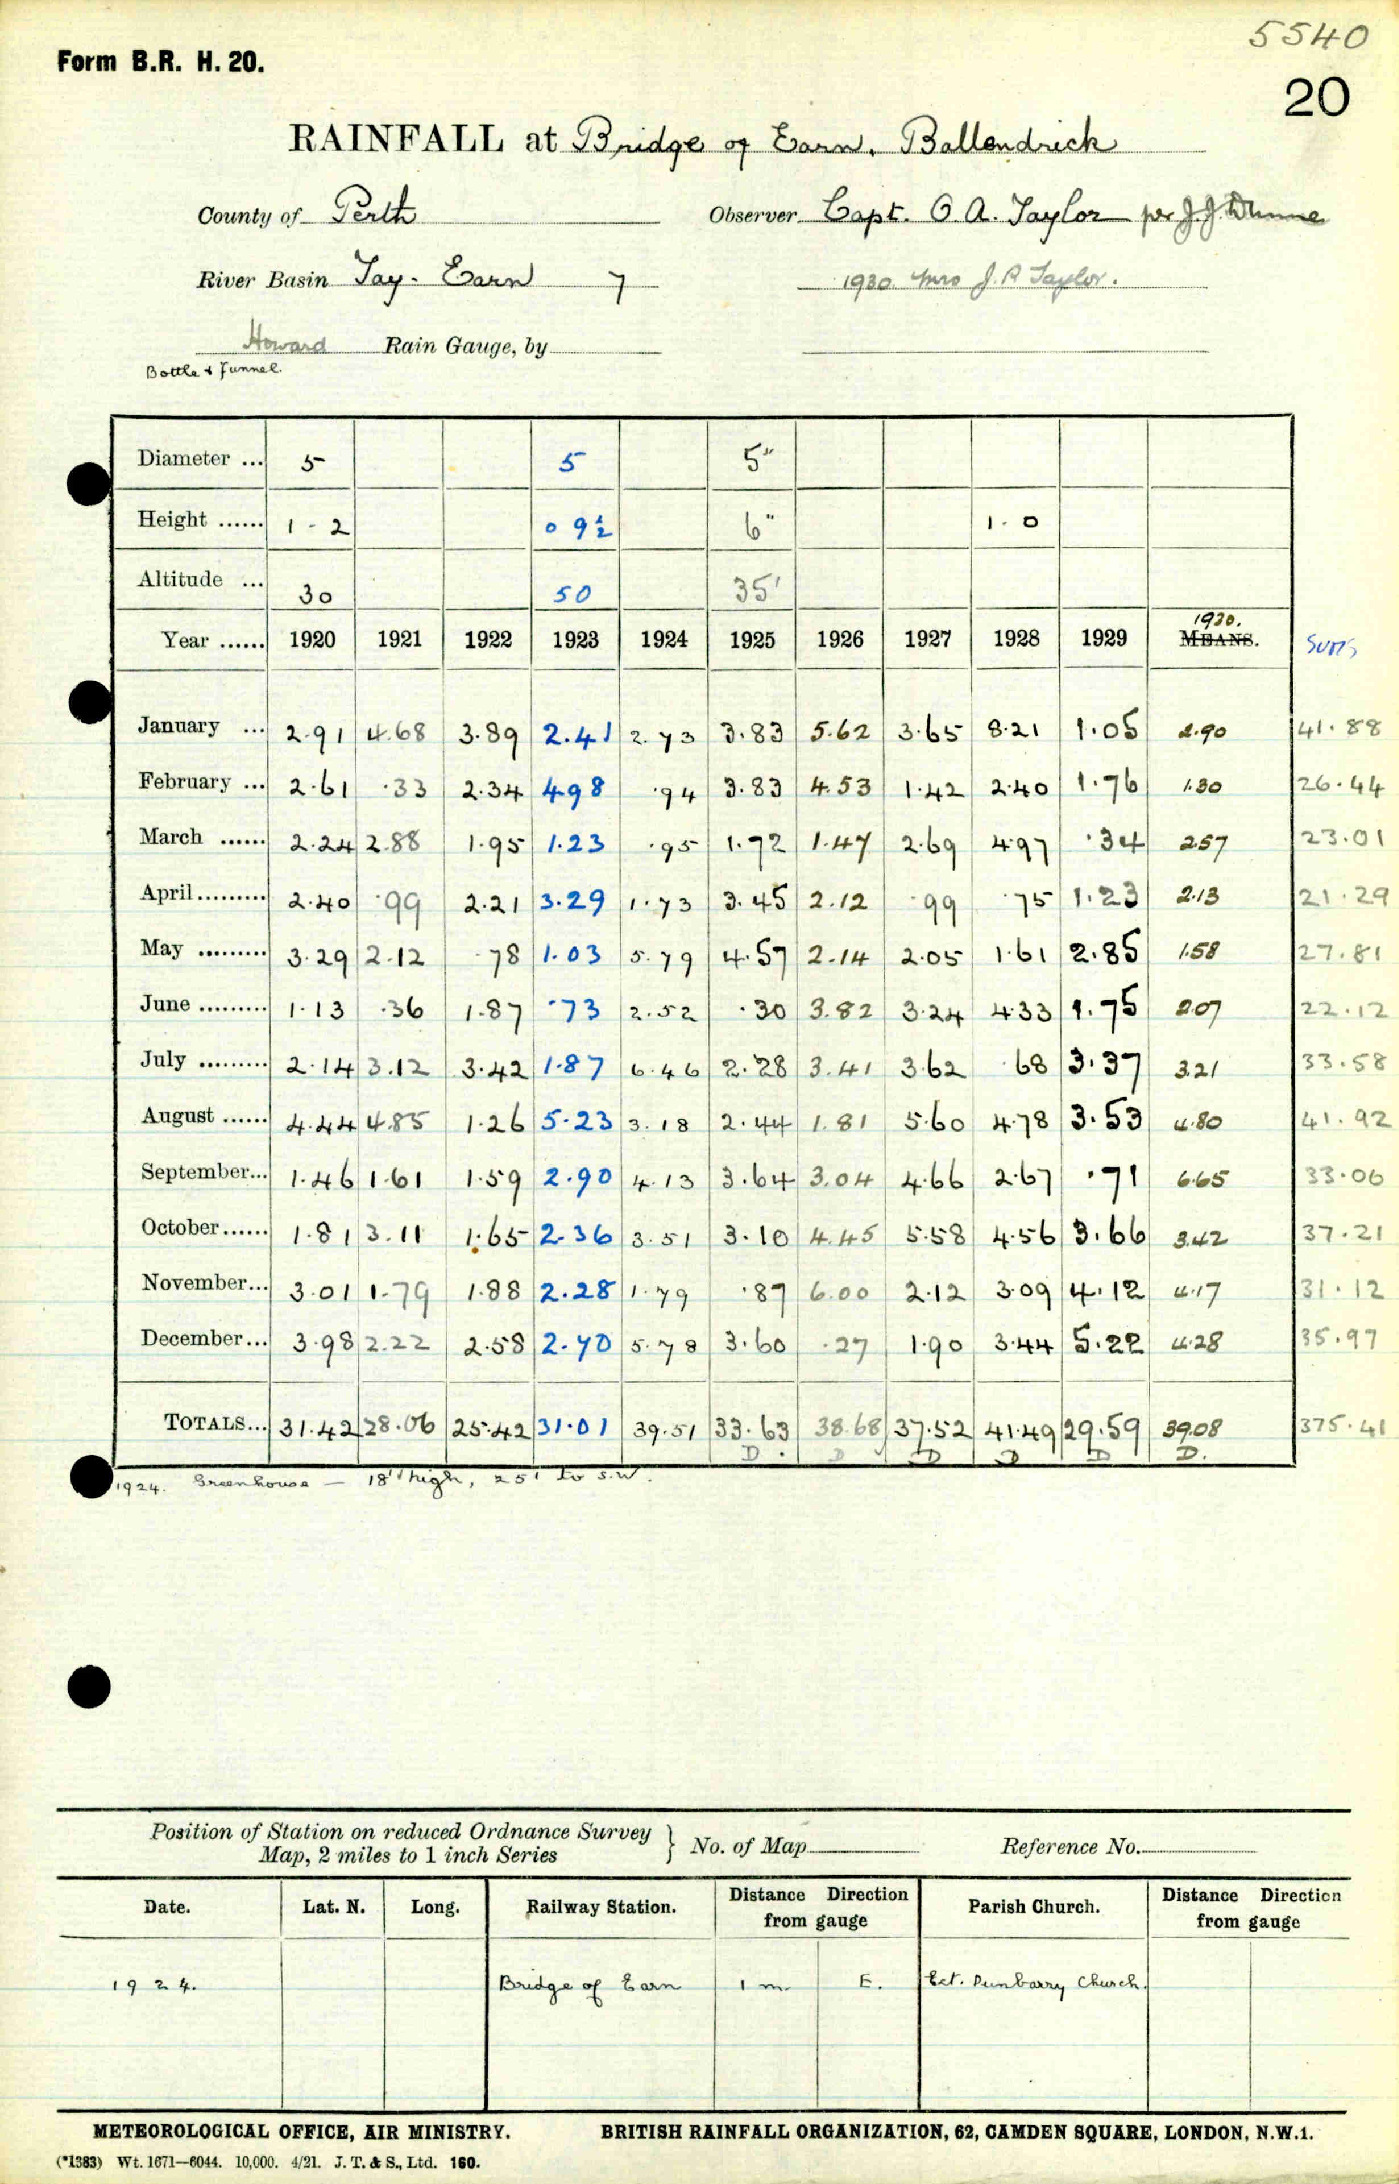 5540
Form B.R. H. 20.
20
RAINFALL at Bridge of Earn, Ballendrick
County of Perth Observer Capt. O A. Taylor per J.J. Dunne
River Basin Tay - Earn 7 1930 Mrs J. R Taylor.
Howard Rain Gauge, by
Bottle & Funnel.
Diameter ... 5 5 5"
Height ...... 1 - 2 0 9½ 6" 1 - 0
Altitude ... 30 50 35'
Year ...... 1920 1921 1922 1923 1924 1925 1926 1927 1928 1929 1930. MEANS. Sums
January ... 2.91 4.68 3.89 2.41 2.73 3.83 5.62 3.65 8.21 1.05 2.90 41.88
February ... 2.61 .33 2.34 4.98 .94 3.83 4.53 1.42 2.40 1.76 1.30 26.44
March ...... 2.24 2.88 1.95 1.23 .95 1.72 1.47 2.69 4.97 .34 2.57 23.01
April ......... 2.40 .99 2.21 3.29 1.73 3.45 2.12 .99 .75 1.23 2.13 21.29
May ......... 3.29 2.12 .78 1.03 5.79 4.57 2.14 2.05 1.61 2.85 1.58 27.81
June ......... 1.13 .36 1.87 .73 2.52 .30 3.82 3.24 4.33 1.75 2.07 22.12
July ......... 2.14 3.12 3.42 1.87 6.46 2.28 3.41 3.62 .68 3.37 3.21 33.58
August ...... 4.44 4.85 1.26 5.23 3.18 2.44 1.81 5.60 4.78 3.53 4.80 41.92
September... 1.46 1.61 1.59 2.90 4.13 3.64 3.04 4.66 2.67 .71 6.65 33.06
October...... 1.81 3.11 1.65 2.36 3.51 3.10 4.45 5.58 4.56 3.66 3.42 37.21
November... 3.01 1.79 1.88 2.28 1.79 .87 6.00 2.12 3.09 4.12 4.17 31.12
December... 3.98 2.22 2.58 2.70 5.78 3.60 .27 1.90 3.44 5.22 4.28 35.97
TOTALS... 31.42 28.06 25.42 31.01 39.51 33.63 38.68 37.52 41.49 29.59 39.08 375.41
D. D D D D D.
1924. Greenhouse — 18' high, 25' to S.W.
Position of Station on reduced Ordnance Survey
Map, 2 miles to 1 inch Series } No. of Map Reference No.
Date. Lat. N. Long. Railway Station. Distance Direction from gauge Parish Church. Distance Direction from gauge
1924. Bridge of Earn 1 m. E. Ect. Dunbarry Church.
METEOROLOGICAL OFFICE, AIR MINISTRY. BRITISH RAINFALL ORGANIZATION, 62, CAMDEN SQUARE, LONDON, N.W.1.
(*1383) Wt. 1671—6044. 10,000. 4/21. J. T. & S., Ltd. 160.